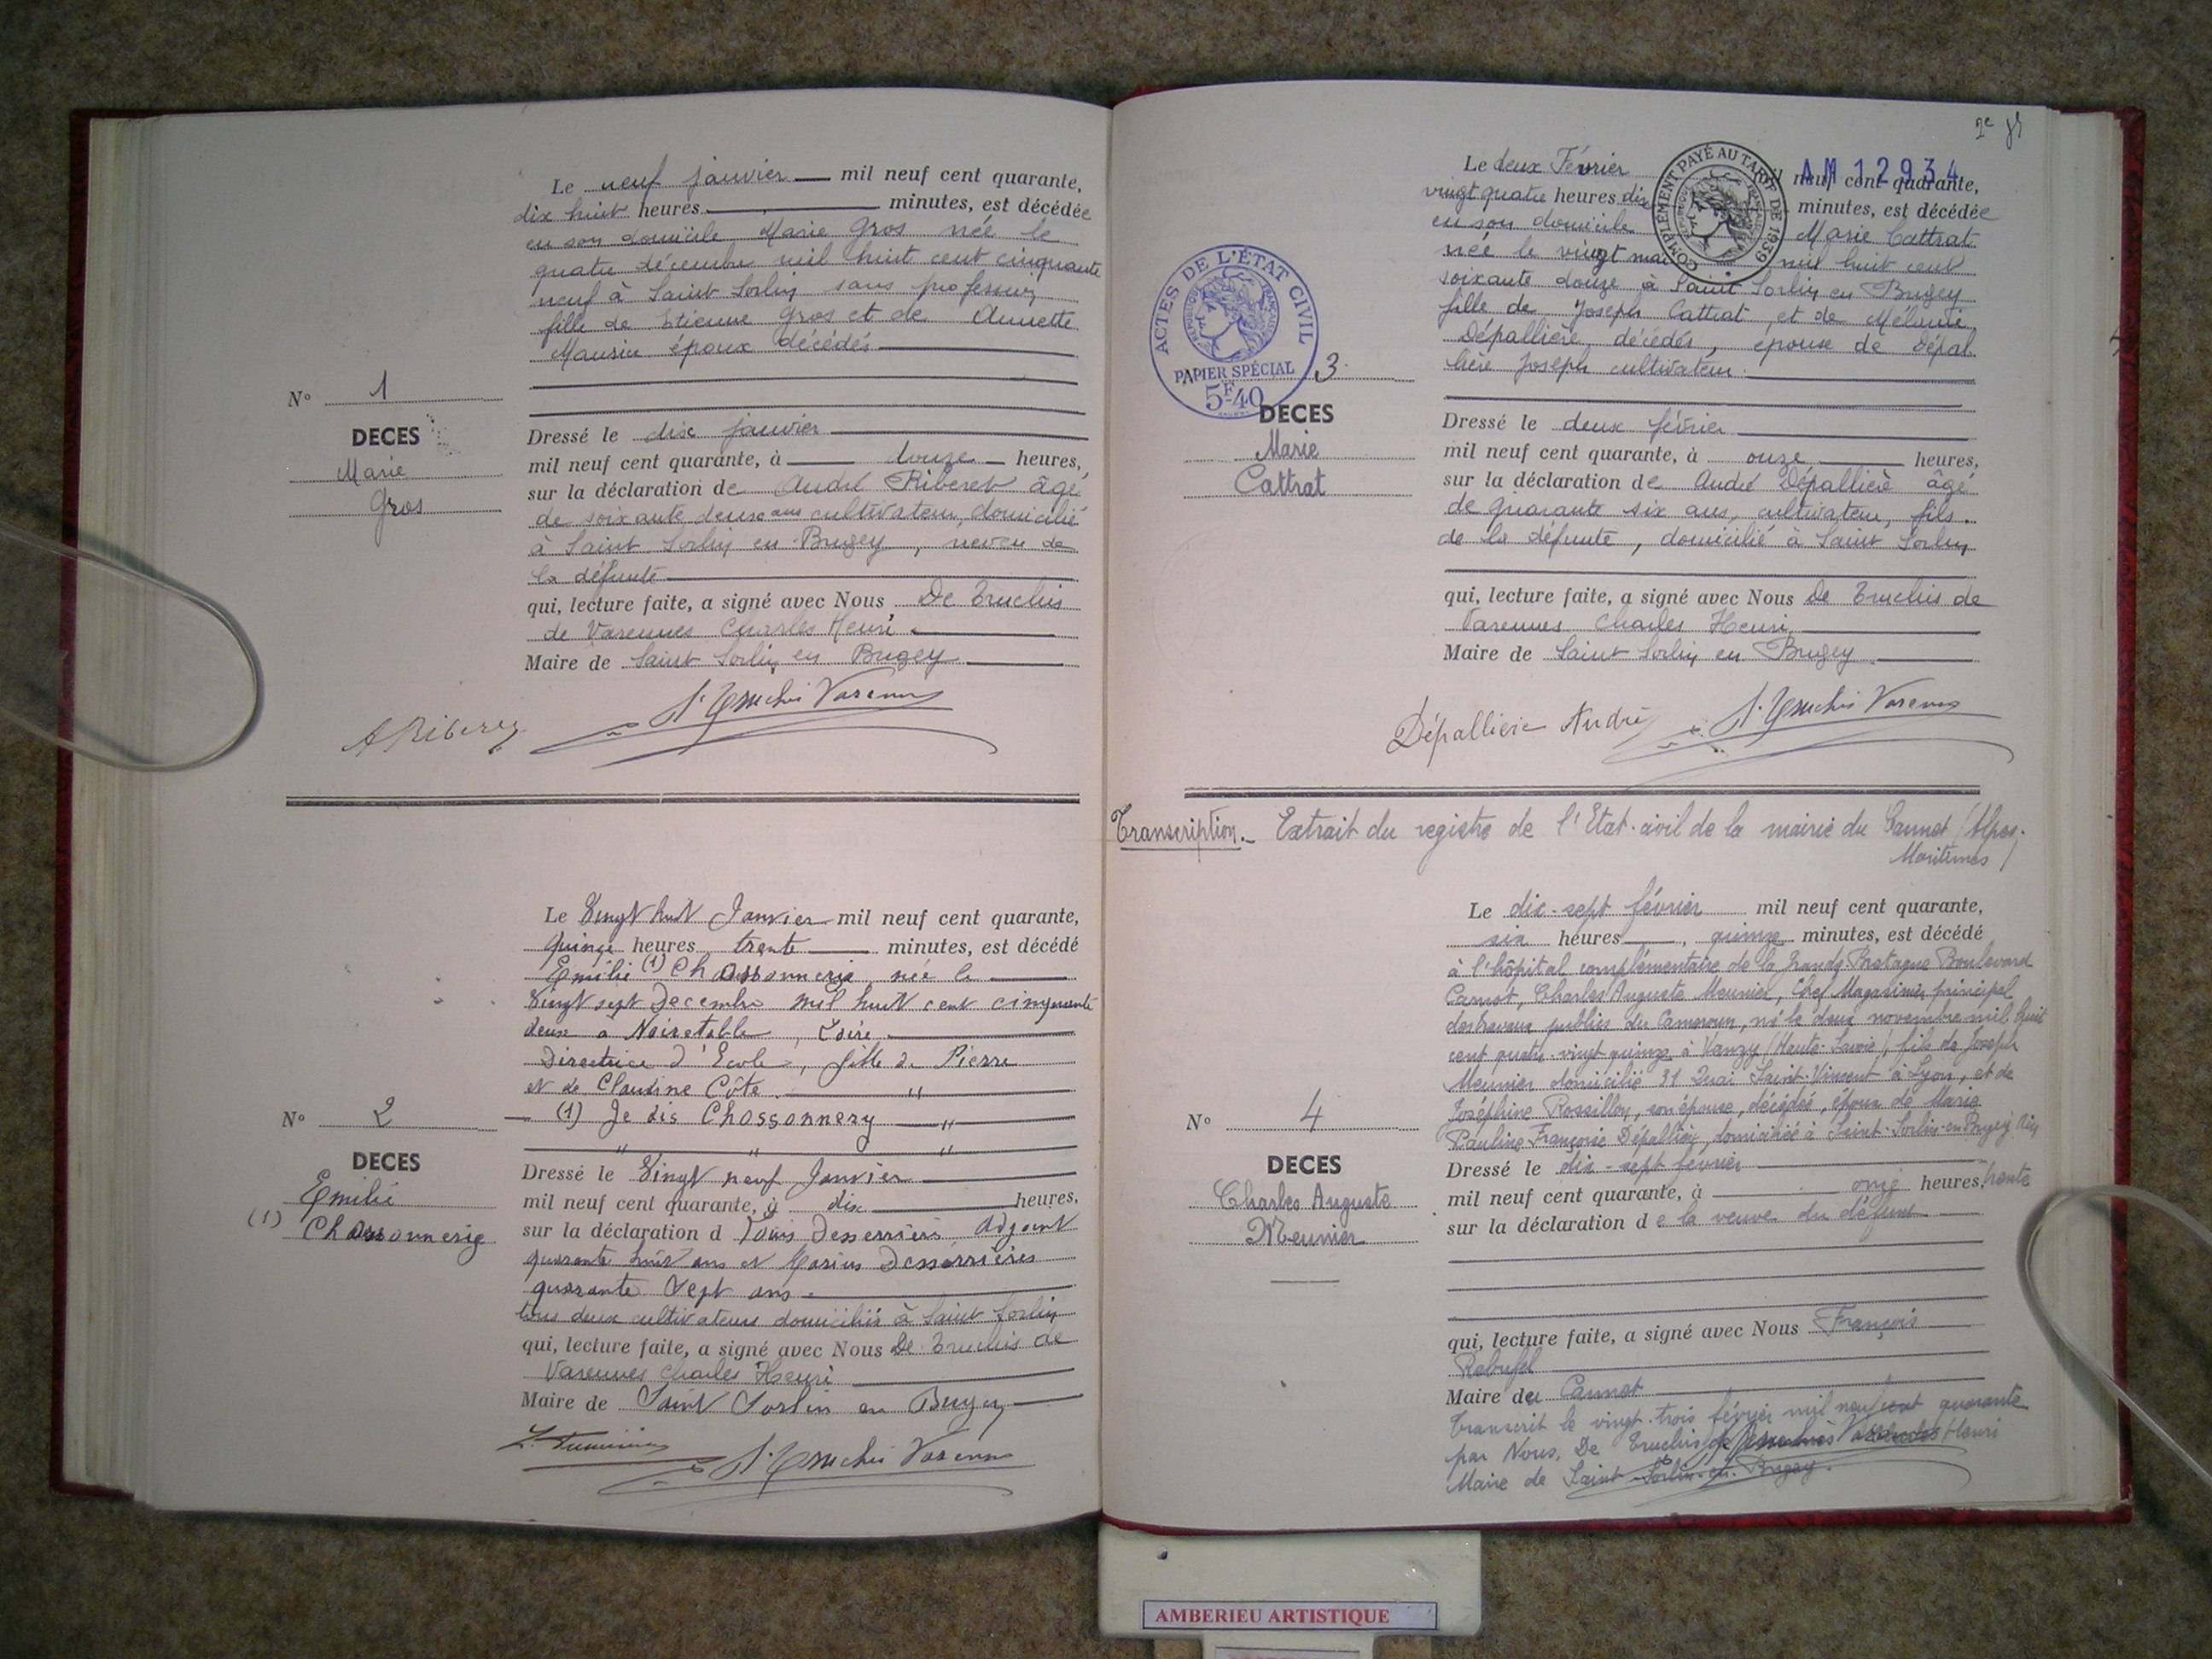 Le neuf janvier mil neuf cent quarante,
dix huit heures minutes, est décédée
en son domicile Marie Gros née le
quatre décembre mil huit cent cinquante
neuf à Saint Sorlin sans profession,
fille de Etienne Gros et de Annette
époux décédés
N° 1
DECES
Marie
Gros
Dressé le dix janvier
mil neuf cent quarante, à douze heures,
sur la déclaration de André Riberet âgé
de soixante deux ans cultivateur, domicilié
à Saint Sorlin en Bugey, neveu de
la défunte
qui, lecture faite, a signé avec Nous De Truchis
de Varennes Charles Henri
Maire de Saint Sorlin en Bugey
Le Vingt huit Janvier mil neuf cent quarante,
quinze heures trente minutes, est décédé
Emélie (1) Chassonnerie, née le
Vingt sept Decembre mil huit cent cinquante
deux à Noiretable, Loire
Directrice d'Ecole, fille de Pierre
et de Claudine Côte. "
(1) Je dis Chossonnery "
" " "
N° 2
DECES
Emélie
(1) Chassonnerie
Dressé le Vingt neuf Janvier
mil neuf cent quarante, à dix heures,
sur la déclaration d Louis Desserrières Adjoint
quarante huit ans et Marius Desserrières
quarante Sept ans
tous deux cultivateurs domiciliés à Saint Sorlin
qui, lecture faite, a signé avec Nous De Truchis de
Varennes Charles Henri
Maire de Saint Sorlin en Bugey
2e
AM 12934
COMPLÉMENT PAYÉ AU TARIF DE 1939
Le deux Février mil neuf cent quarante,
vingt quatre heures dix minutes, est décédée
en son domicile Marie Cattrat
née le vingt mai mil huit cent
soixante douze à Saint Sorlin en Bugey
fille de Joseph Cattrat, et de Mélanie
Dépallière, décédés, épouse de Dépal
lière Joseph cultivateur.
ACTES DE L'ÉTAT CIVIL
RÉPUBLIQUE FRANÇAISE
PAPIER SPÉCIAL
5F40
3.
DECES
Marie
Cattrat
Dressé le deux février
mil neuf cent quarante, à onze heures,
sur la déclaration de André Dépallière âgé
de quarante six ans, cultivateur, fils
de la défunte, domicilié à Saint Sorlin
qui, lecture faite, a signé avec Nous De Truchis de
Varennes Charles Henri
Maire de Saint Sorlin en Bugey
Dépallière André
Transcription.- Extrait du registre de l'Etat-civil de la mairie du Cannet (Alpes-
Maritimes)
Le dix-sept février mil neuf cent quarante,
six heures, quinze minutes, est décédé
à l'hôpital complémentaire de la Grande Bretagne Boulevard
Carnot, Charles Auguste Meunier, Chef Magasinier principal
des travaux publics du Cameroun, né le deux novembre mil huit
cent quatre-vingt quinze à Vanzy (Haute-Savoie), fils de Joseph
Meunier domicilié 31 Quai Saint-Vincent à Lyon, et de
Joséphine Rossillon, son épouse, décédés, époux de Marie
Pauline Françoise Dépallière, domiciliée à Saint-Sorlin-en-Bugey Ain
N° 4
DECES
Charles Auguste
Meunier
Dressé le dix-sept février
mil neuf cent quarante, à onze heures, trente
sur la déclaration de la veuve du défunt
qui, lecture faite, a signé avec Nous François
Maire du Cannet
Transcrit le vingt-trois février mil neuf cent quarante
par Nous, De Truchis de Henri
Maire de Saint-Sorlin-en-Bugey.
AMBERIEU ARTISTIQUE